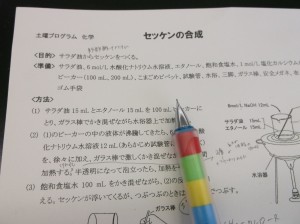 土曜プログラム 化学
セッケンの合成
<目的> サラダ油からセッケンをつくる。
<準備> サラダ油、6mol/L 水酸化ナトリウム水溶液、エタノール、飽和食塩水、1mol/L 塩化カルシウム
ビーカー(100 mL, 200 mL)、こまごめピペット、試験管、水浴、三脚、ガラス棒、安全メガネ、
ゴム手袋
<方法>
(1) サラダ油 15 mL とエタノール 15 mL を 100 mL
とり、ガラス棒でかき混ぜながら水浴上で加
(2) (1)のビーカーの中の液体が沸騰してきたら、
化ナトリウム水溶液 12mL(あらかじめ試験管に
を、徐々に加え、ガラス棒で激しくかき混ぜな
加熱する。半透明になって泡立ったら、加熱を
(3) 飽和食塩水 100 mL をかき混ぜながら、(2)の
える。セッケンが浮いてくるが、つぶつぶのときは
つぶす。
ガラス棒
6mol/L NaOH 12mL
サラダ油 15mL
エタノール 15mL
水浴器